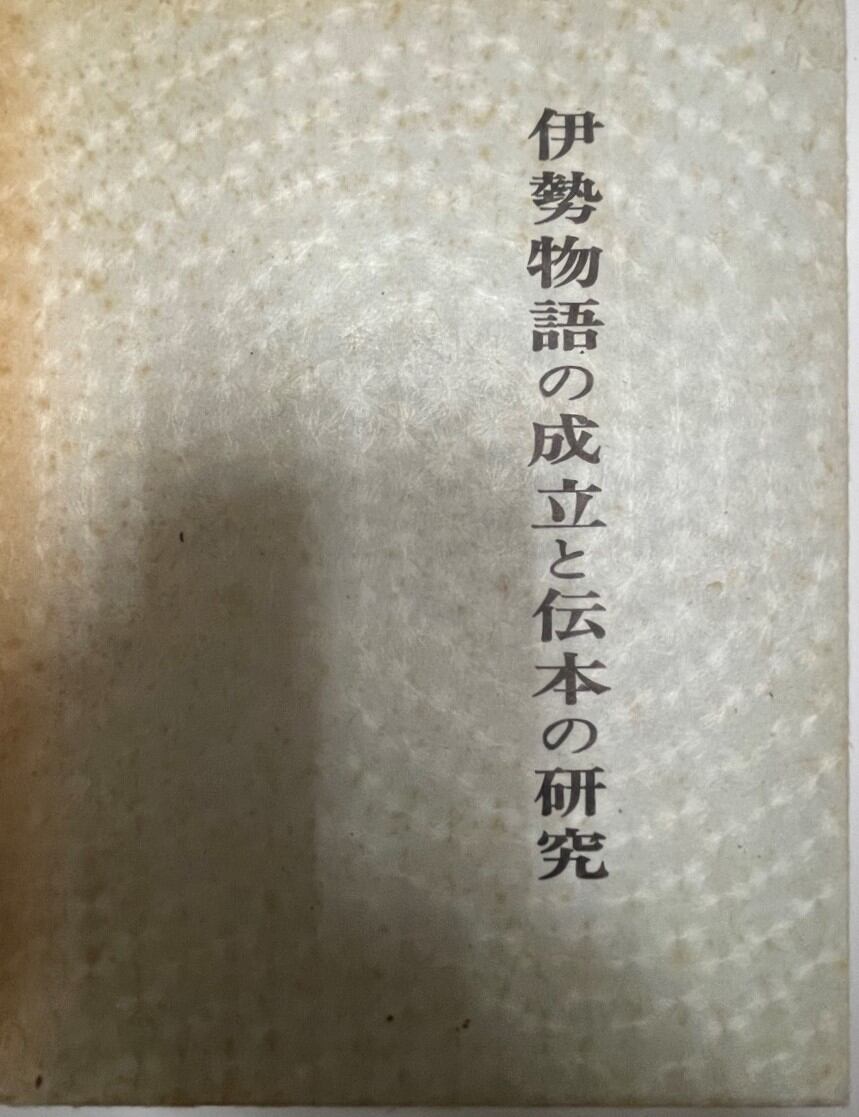 伊勢物語の成立と伝本の研究